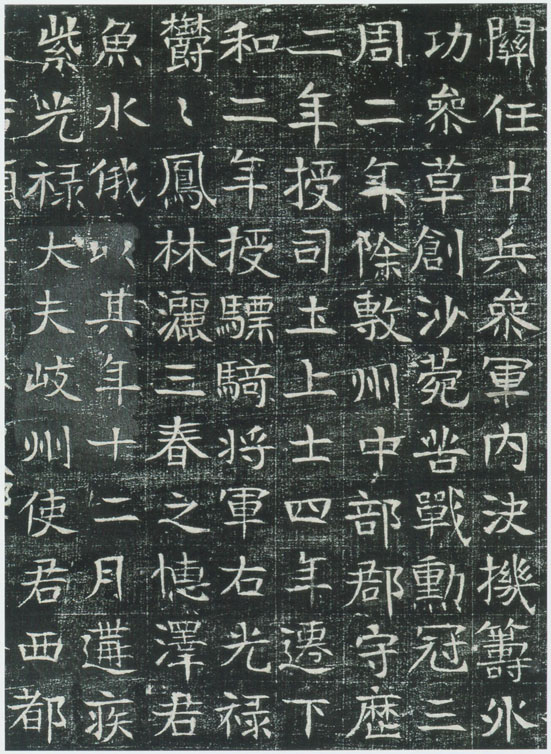 關任中兵叅軍内決機籌外
功叅草創沙菀苦戰勳冠三
周二年除敷州中部郡守歷
二年授司土上士四年遷下
和二年授驃騎将軍右光禄
鬱〻鳳林灑三春之徳澤君
魚水俄以其年十二月遘疾
紫光禄大夫岐州使君西都